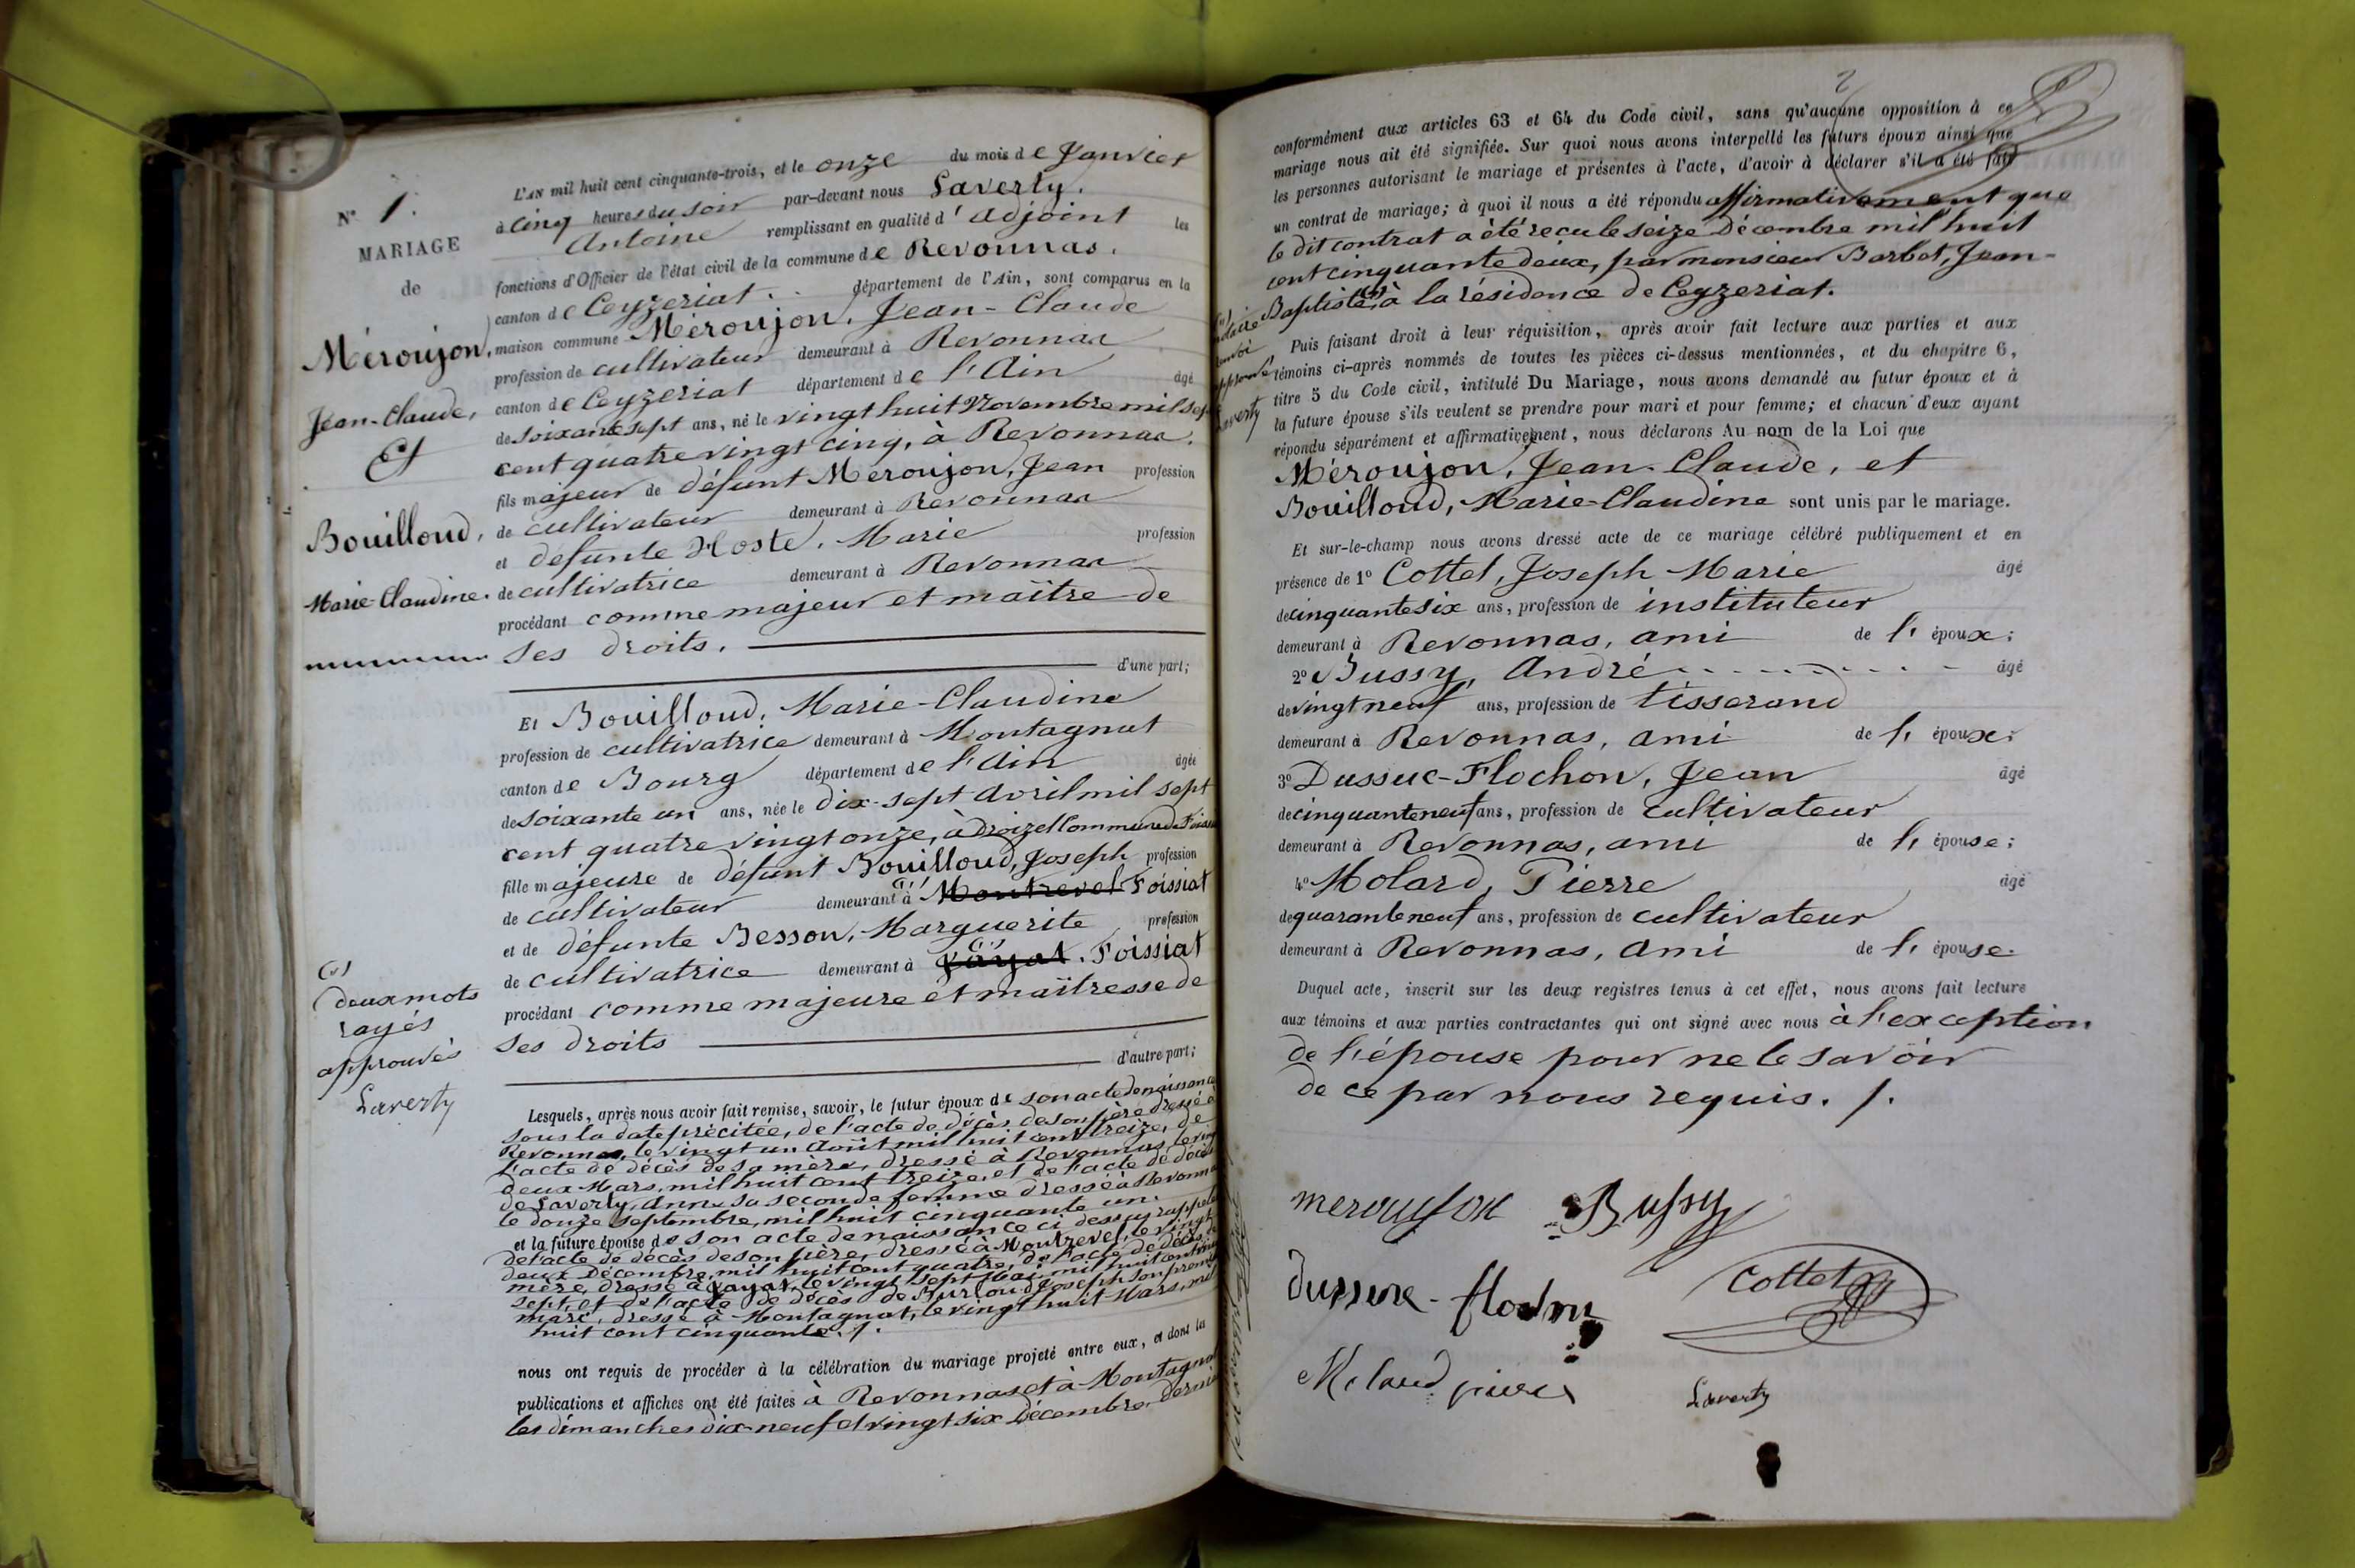 N° 1.
MARIAGE
de
Méroujon,
Jean-Claude,
Et
Bouilloud,
Marie-Claudine.
(1)
deux mots
rayés
approuvés
Laverty
L'AN mil huit cent cinquante-trois, et le onze du mois de Janvier
à cinq heures du soir par-devant nous Laverty.
Antoine remplissant en qualité d'adjoint les
fonctions d'Officier de l'état civil de la commune de Revonnas.
canton de Ceyzeriat. département de l'Ain, sont comparus en la
maison commune Méroujon, Jean-Claude
profession de cultivateur demeurant à Revonnas
canton de Ceyzeriat département de l'Ain âgé
de soixante sept ans, né le vingt huit Novembre mil sept
cent quatre vingt cinq, à Revonnas.
fils majeur de défunt Méroujon, Jean profession
de cultivateur demeurant à Revonnas
et défunte Hoste, Marie profession
de cultivatrice demeurant à Revonnas
procédant comme majeur et maître de
ses droits.
d'une part;
Et Bouilloud, Marie-Claudine
profession de cultivatrice demeurant à Montagnat
canton de Bourg département de l'Ain âgée
de soixante un ans, née le dix-sept avril mil sept
cent quatre vingt onze, à Droizel Commune de
fille majeure de défunt Bouilloud, Joseph profession
de cultivateur demeurant à (1) Montrevel Foissiat
et de défunte Besson, Marguerite profession
de cultivatrice demeurant à (1) Jayat. Foissiat
procédant comme majeure et maîtresse de
ses droits
d'autre part;
Lesquels, après nous avoir fait remise, savoir, le futur époux de son acte de naissance
sous la date précitée, de l'acte de décès de son père dressé à
Revonnas, le vingt un août mil huit cent treize, de
l'acte de décès de sa mère, dressé à Revonnas, le vingt
deux Mars, mil huit cent treize, et de l'acte de décès
de Laverty, Anne sa seconde femme dressé à Revonnas
le douze septembre, mil huit cinquante un.
et la future épouse de son acte de naissance ci dessus rappelé
de l'acte de décès de son père, dressé à Montrevel, le vingt
deux Décembre, mil huit cent quatre, de l'acte de décès de
mère, dressé à Jayat, le vingt sept Mai mil huit cent
sept, et de l'acte de décès de Burloud Joseph son premier
mari, dressé à Montagnat, le vingt huit Mars, mil
huit cent cinquante. /.
nous ont requis de procéder à la célébration du mariage projeté entre eux, et dont la
publications et affiches ont été faites à Revonnas et à Montagnat
les dimanches dix-neuf et vingt six Décembre dernier
2
conformément aux articles 63 et 64 du Code civil, sans qu'aucune opposition à ce
mariage nous ait été signifiée. Sur quoi nous avons interpellé les futurs époux ainsi que
les personnes autorisant le mariage et présentes à l'acte, d'avoir à déclarer s'il a été fait
un contrat de mariage; à quoi il nous a été répondu affirmativement que
le dit contrat a été reçu le seize Décembre mil huit
cent cinquante deux, par monsieur Barbet, Jean-
Baptiste, (1) à la résidence de Ceyzeriat.
(1)
notaire
renvoi
approuvé
Laverty
Puis faisant droit à leur réquisition, après avoir fait lecture aux parties et aux
témoins ci-après nommés de toutes les pièces ci-dessus mentionnées, et du chapitre 6,
titre 5 du Code civil, intitulé Du Mariage, nous avons demandé au futur époux et à
la future épouse s'ils veulent se prendre pour mari et pour femme; et chacun d'eux ayant
répondu séparément et affirmativement, nous déclarons Au nom de la Loi que
Méroujon, Jean-Claude, et
Bouilloud, Marie-Claudine sont unis par le mariage.
Et sur-le-champ nous avons dressé acte de ce mariage célébré publiquement et en
présence de 1° Cottet, Joseph-Marie âgé
de cinquante six ans, profession de instituteur
demeurant à Revonnas, ami de l' époux;
2° Bussy, André âgé
de vingt neuf ans, profession de tisserand
demeurant à Revonnas, ami de l' époux.
3° Dussuc-Flochon, Jean âgé
de cinquante neuf ans, profession de cultivateur
demeurant à Revonnas, ami de l' épouse;
4° Molard, Pierre âgé
de quarante neuf ans, profession de cultivateur
demeurant à Revonnas, ami de l' épouse.
Duquel acte, inscrit sur les deux registres tenus à cet effet, nous avons fait lecture
aux témoins et aux parties contractantes qui ont signé avec nous à l'exception
de l'épouse pour ne le savoir
de ce par nous requis. /.
meroujon Bussy
Cottet
Laverty